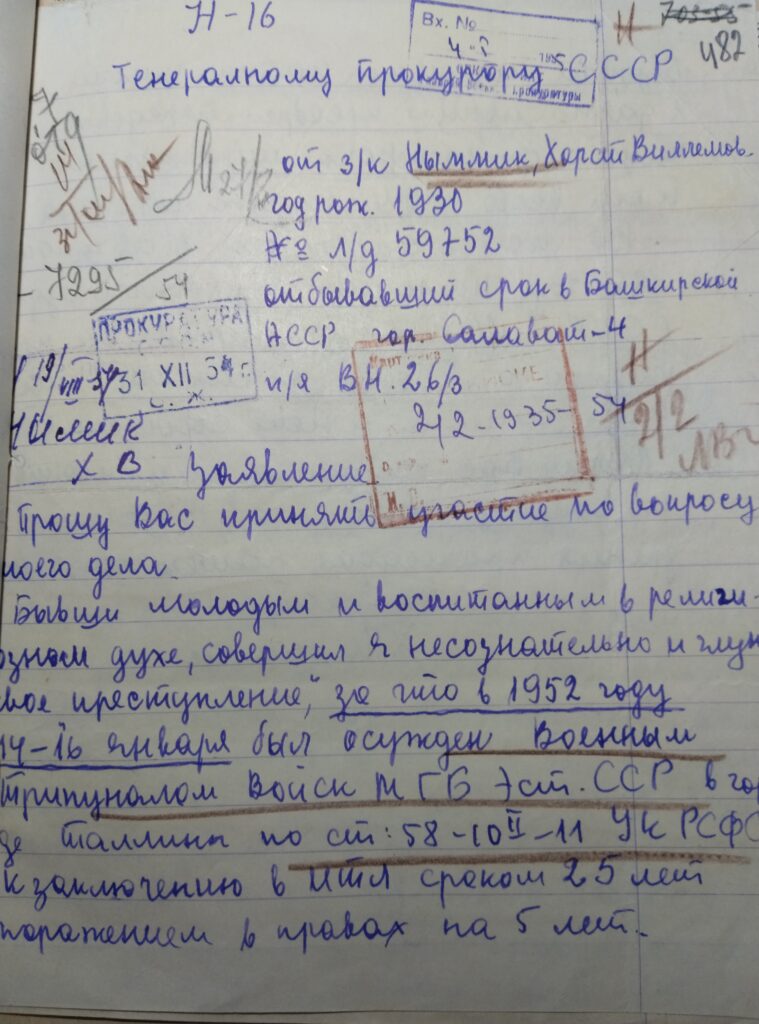 Н-16
Вх. №
4-I
1955
прокуратуры
Н
703-55
482
Генералному прокурору СССР
от з/к Ныммик, Хорст Виллемов.
год рож. 1930
№ л/д 59752
отбывавший срок в Башкирской
АССР гор. Салават-4
п/я ВН. 26/3
27/
- 7295
54
ПРОКУРАТУРА
СССР
31 XII 54 г.
С. Ж.
19/VIII 54
Нымик
Х В
2/2-1935-54
Н
2/2
Заявление
Прошу Вас принять участие по вопросу
моего дела.
Бывши молодым и воспитанным в религи-
озном духе, совершил я несознательно и глуп
свое преступление, за что в 1952 году
14-16 января был осужден Военным
Трипуналом Войск МГБ Эст. ССР в го
де Таллины по ст: 58-10 II -11 УК РСФС
к заключению в ИТЛ сроком 25 лет
поражением в правах на 5 лет.